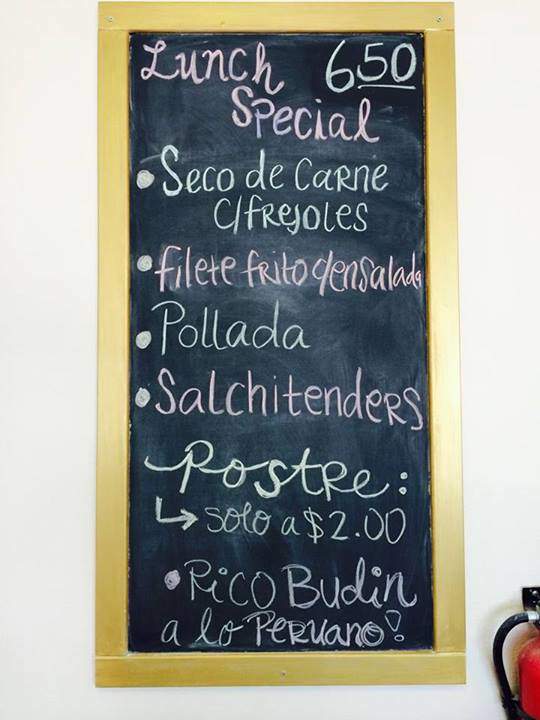 Lunch 650
Special
• Seco de Carne
c/frejoles
• filete frito c/ensalada
• Pollada
• Salchitenders
Postre:
↳ solo a $2.00
• Rico Budin
a lo Peruano!